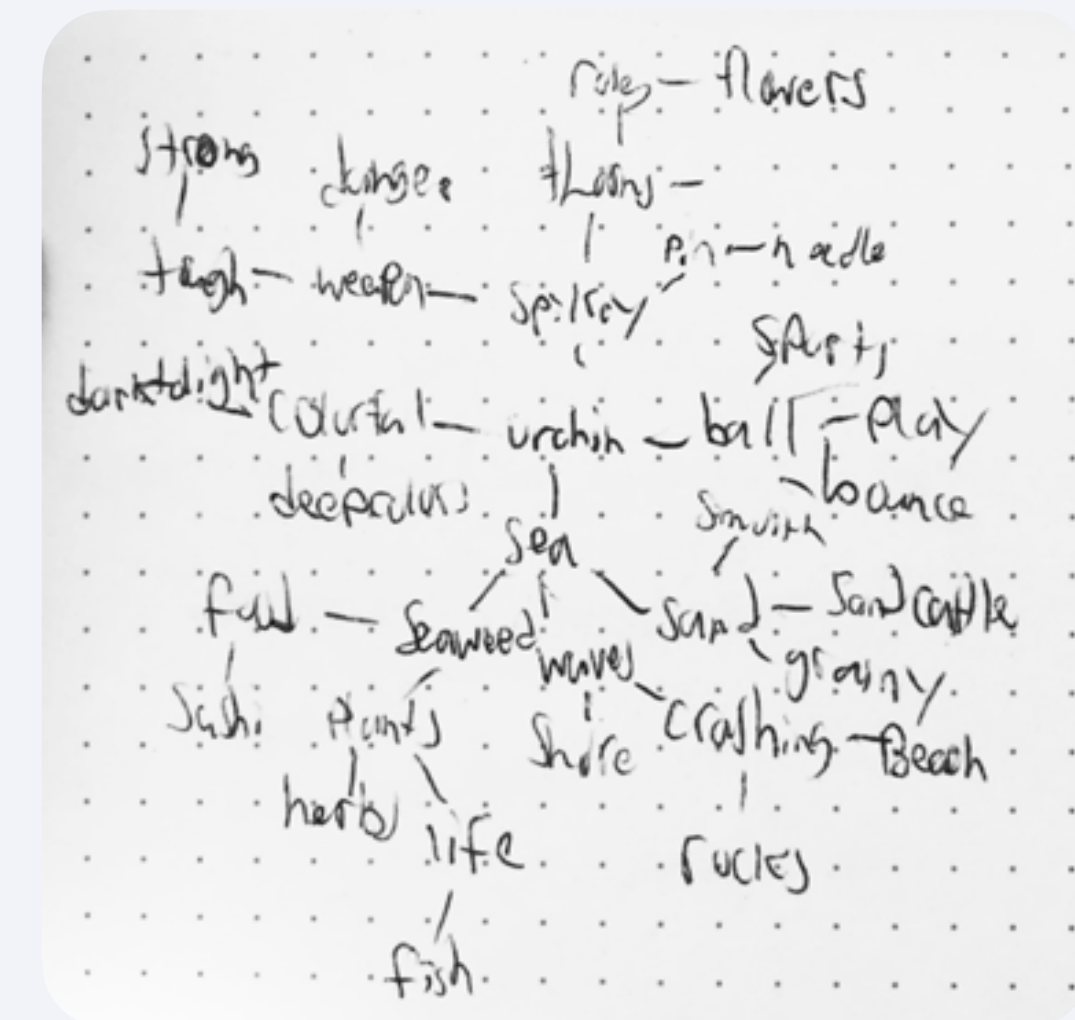 roses — flowers
strong danger thorns —
tough — weapon — spikey pin — needle
sports
dark + light colurful — urchin — ball — play
deep colurs bounce
smooth
sea
food — seaweed sand — sand castle
waves grainy
sushi plants shore crashing — Beach
herbs life rocks
fish